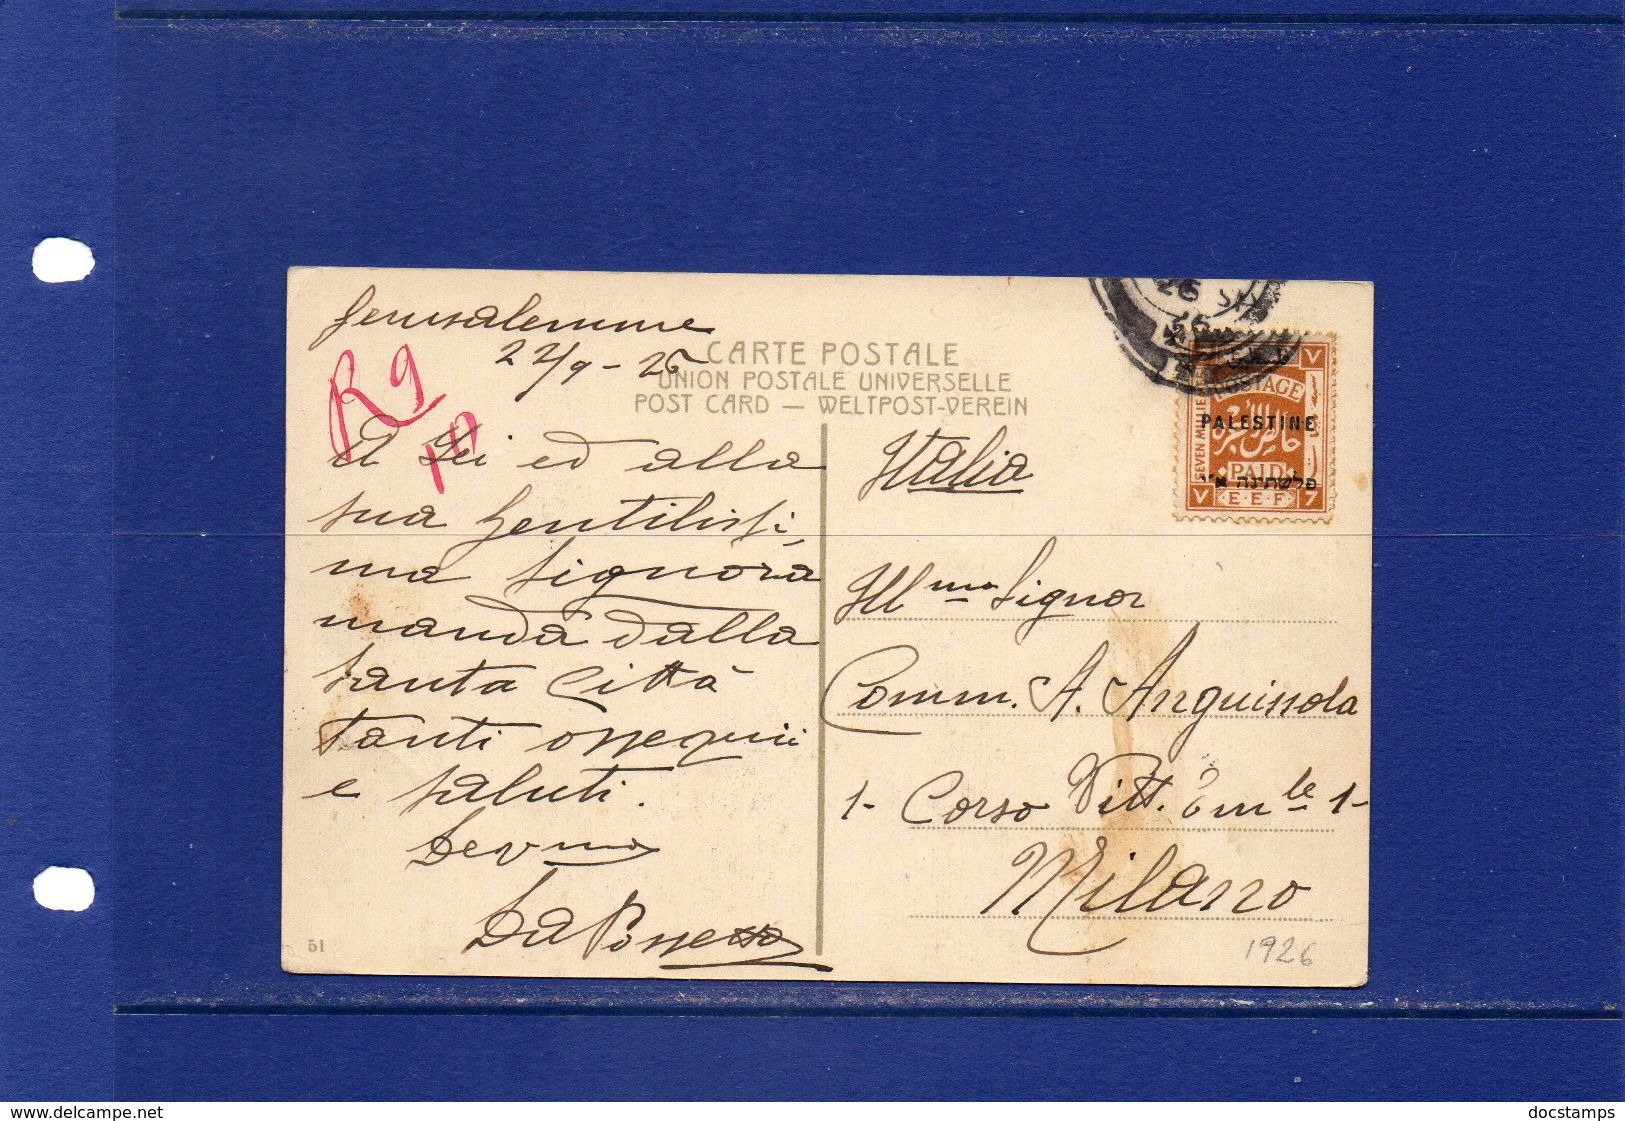 Jerusalemme
22/9-26
CARTE POSTALE
UNION POSTALE UNIVERSELLE
POST CARD — WELTPOST-VEREIN
R 9
10
A Lei ed alla
sua gentilissi,
ma Signora
manda dalla
Santa Città
tanti ossequi
e saluti.
Dev mo
51
Italia
Ill mo Signor
Comm. A. Anguissola
1- Corso Vitt. Em le 1-
Milano
1926
POSTAGE
SEVEN MILLIEMES
PALESTINE
PAID
פלשתינה א״י
E·E·F
7
٧
www.delcampe.net
docstamps